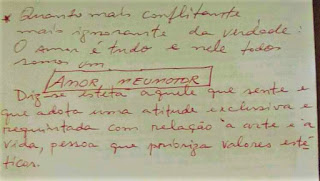 * Quanto mais conflitante
mais ignorante da verdade:
O amor é tudo e nele todos
somos um
AMOR, MEU MOTOR
Diz-se esteta aquele que sente e
que adota uma atitude exclusiva e
requintada com relação à arte e à
vida, pessoa que prioriza valores esté-
ticos.